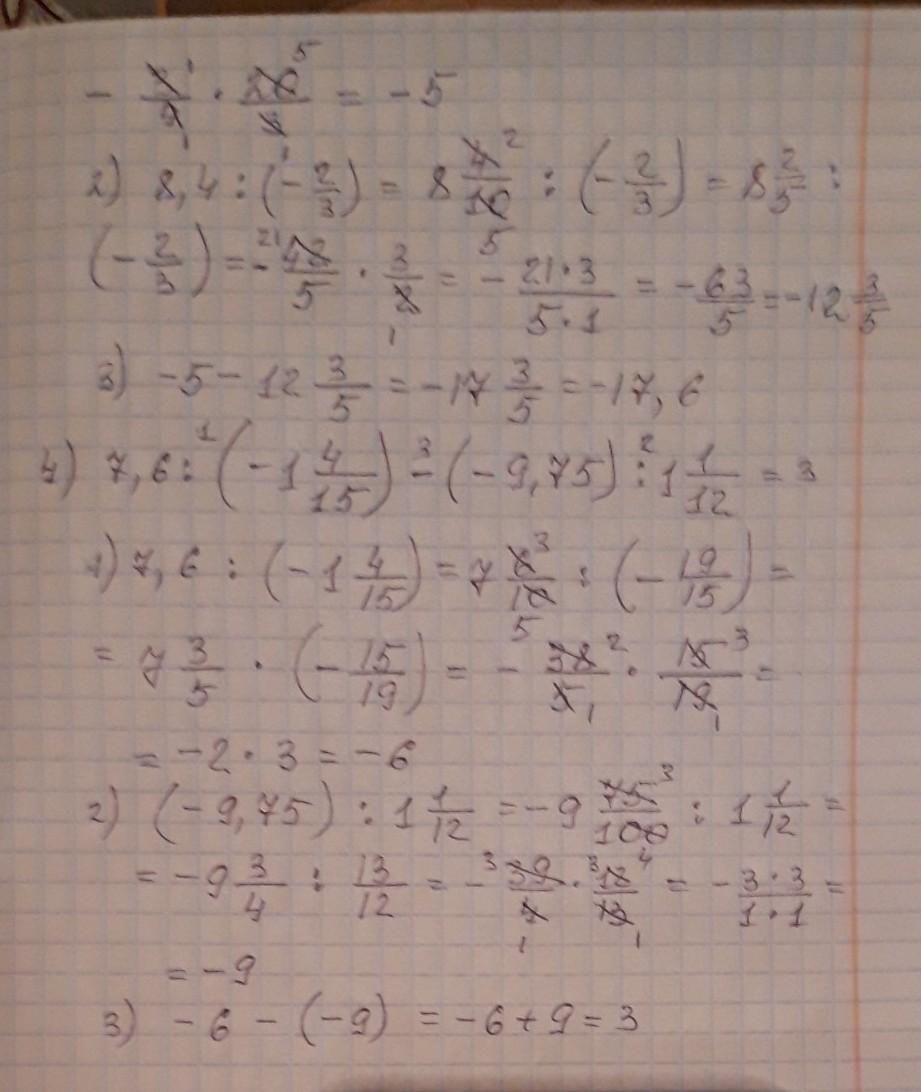 - 1/9 · 20⁵/4 = -5
2) 8,4 : (-2/3) = 8 4²/10₅ : (-2/3) = 8 2/5 :
(-2/3) = -²¹42/5 · 3/2₁ = - 21·3/5·1 = -63/5 = -12 3/5
3) -5 - 12 3/5 = -17 3/5 = -17,6
4) 7,6 :¹ (-1 4/15) -³ (-9,75) :² 1 1/12 = 3
1) 7,6 : (-1 4/15) = 7 6³/10₅ : (-19/15) =
= 7 3/5 · (-15/19) = - 38²/5₁ · 15³/19₁ =
= -2 · 3 = -6
2) (-9,75) : 1 1/12 = -9 75³/100 : 1 1/12 =
= -9 3/4 : 13/12 = -³39/4₁ · ³12⁴/13₁ = - 3·3/1·1 =
= -9
3) -6 - (-9) = -6 + 9 = 3